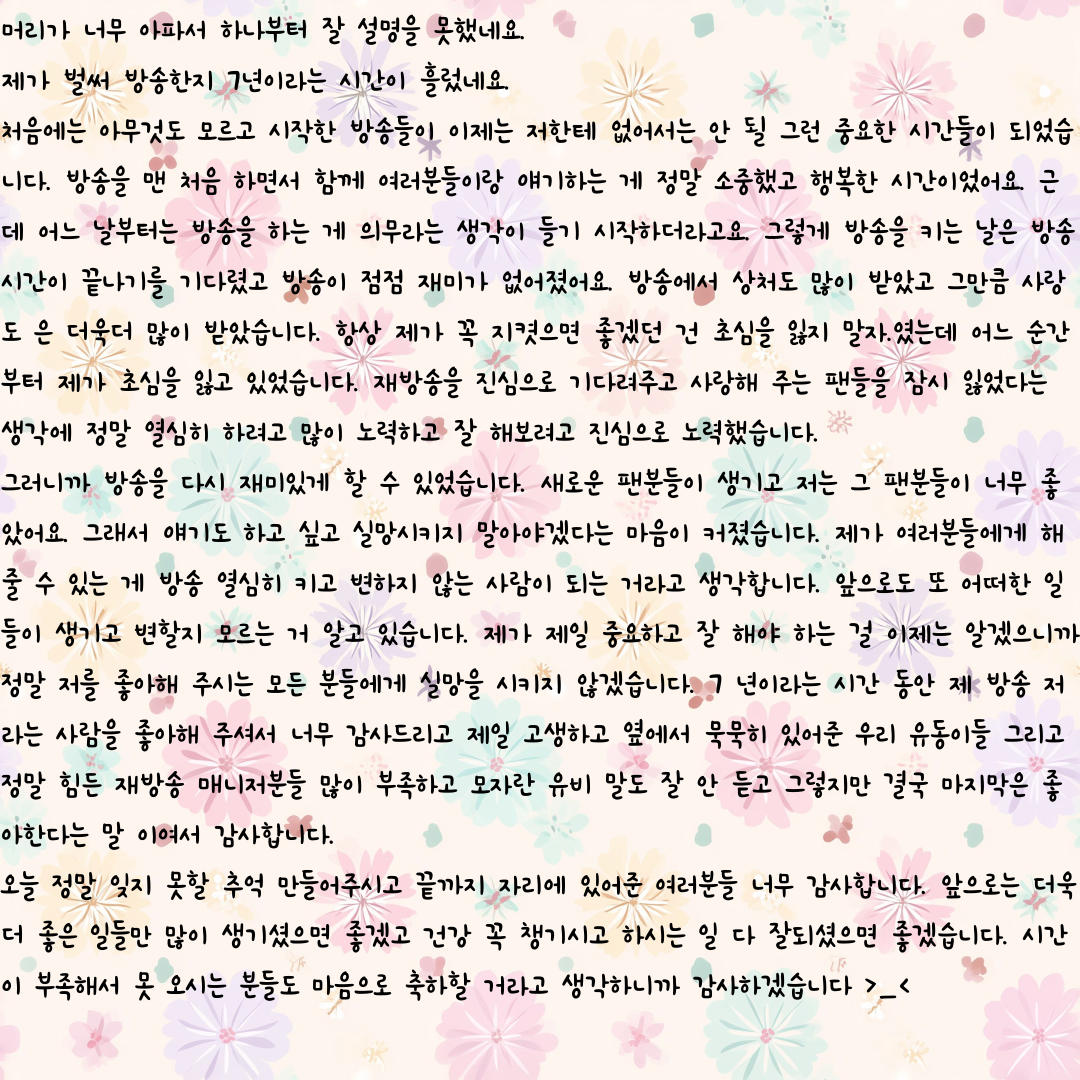 머리가 너무 아파서 하나부터 잘 설명을 못했네요.
제가 벌써 방송한지 7년이라는 시간이 흘렀네요.
처음에는 아무것도 모르고 시작한 방송들이 이제는 저한테 없어서는 안 될 그런 중요한 시간들이 되었습
니다. 방송을 맨 처음 하면서 함께 여러분들이랑 얘기하는 게 정말 소중했고 행복한 시간이었어요. 근
데 어느 날부터는 방송을 하는 게 의무라는 생각이 들기 시작하더라고요. 그렇게 방송을 키는 날은 방송
시간이 끝나기를 기다렸고 방송이 점점 재미가 없어졌어요. 방송에서 상처도 많이 받았고 그만큼 사랑
도 은 더욱더 많이 받았습니다. 항상 제가 꼭 지켯으면 좋겠던 건 초심을 잃지 말자.였는데 어느 순간
부터 제가 초심을 잃고 있었습니다. 재방송을 진심으로 기다려주고 사랑해 주는 팬들을 잠시 잃었다는
생각에 정말 열심히 하려고 많이 노력하고 잘 해보려고 진심으로 노력했습니다.
그러니까 방송을 다시 재미있게 할 수 있었습니다. 새로운 팬분들이 생기고 저는 그 팬분들이 너무 좋
았어요. 그래서 얘기도 하고 싶고 실망시키지 말아야겠다는 마음이 커졌습니다. 제가 여러분들에게 해
줄 수 있는 게 방송 열심히 키고 변하지 않는 사람이 되는 거라고 생각합니다. 앞으로도 또 어떠한 일
들이 생기고 변할지 모르는 거 알고 있습니다. 제가 제일 중요하고 잘 해야 하는 걸 이제는 알겠으니까
정말 저를 좋아해 주시는 모든 분들에게 실망을 시키지 않겠습니다. 7 년이라는 시간 동안 제 방송 저
라는 사람을 좋아해 주셔서 너무 감사드리고 제일 고생하고 옆에서 묵묵히 있어준 우리 유동이들 그리고
정말 힘든 재방송 매니저분들 많이 부족하고 모자란 유비 말도 잘 안 듣고 그렇지만 결국 마지막은 좋
아한다는 말 이여서 감사합니다.
오늘 정말 잊지 못할 추억 만들어주시고 끝까지 자리에 있어준 여러분들 너무 감사합니다. 앞으로는 더욱
더 좋은 일들만 많이 생기셨으면 좋겠고 건강 꼭 챙기시고 하시는 일 다 잘되셨으면 좋겠습니다. 시간
이 부족해서 못 오시는 분들도 마음으로 축하할 거라고 생각하니까 감사하겠습니다 >_<